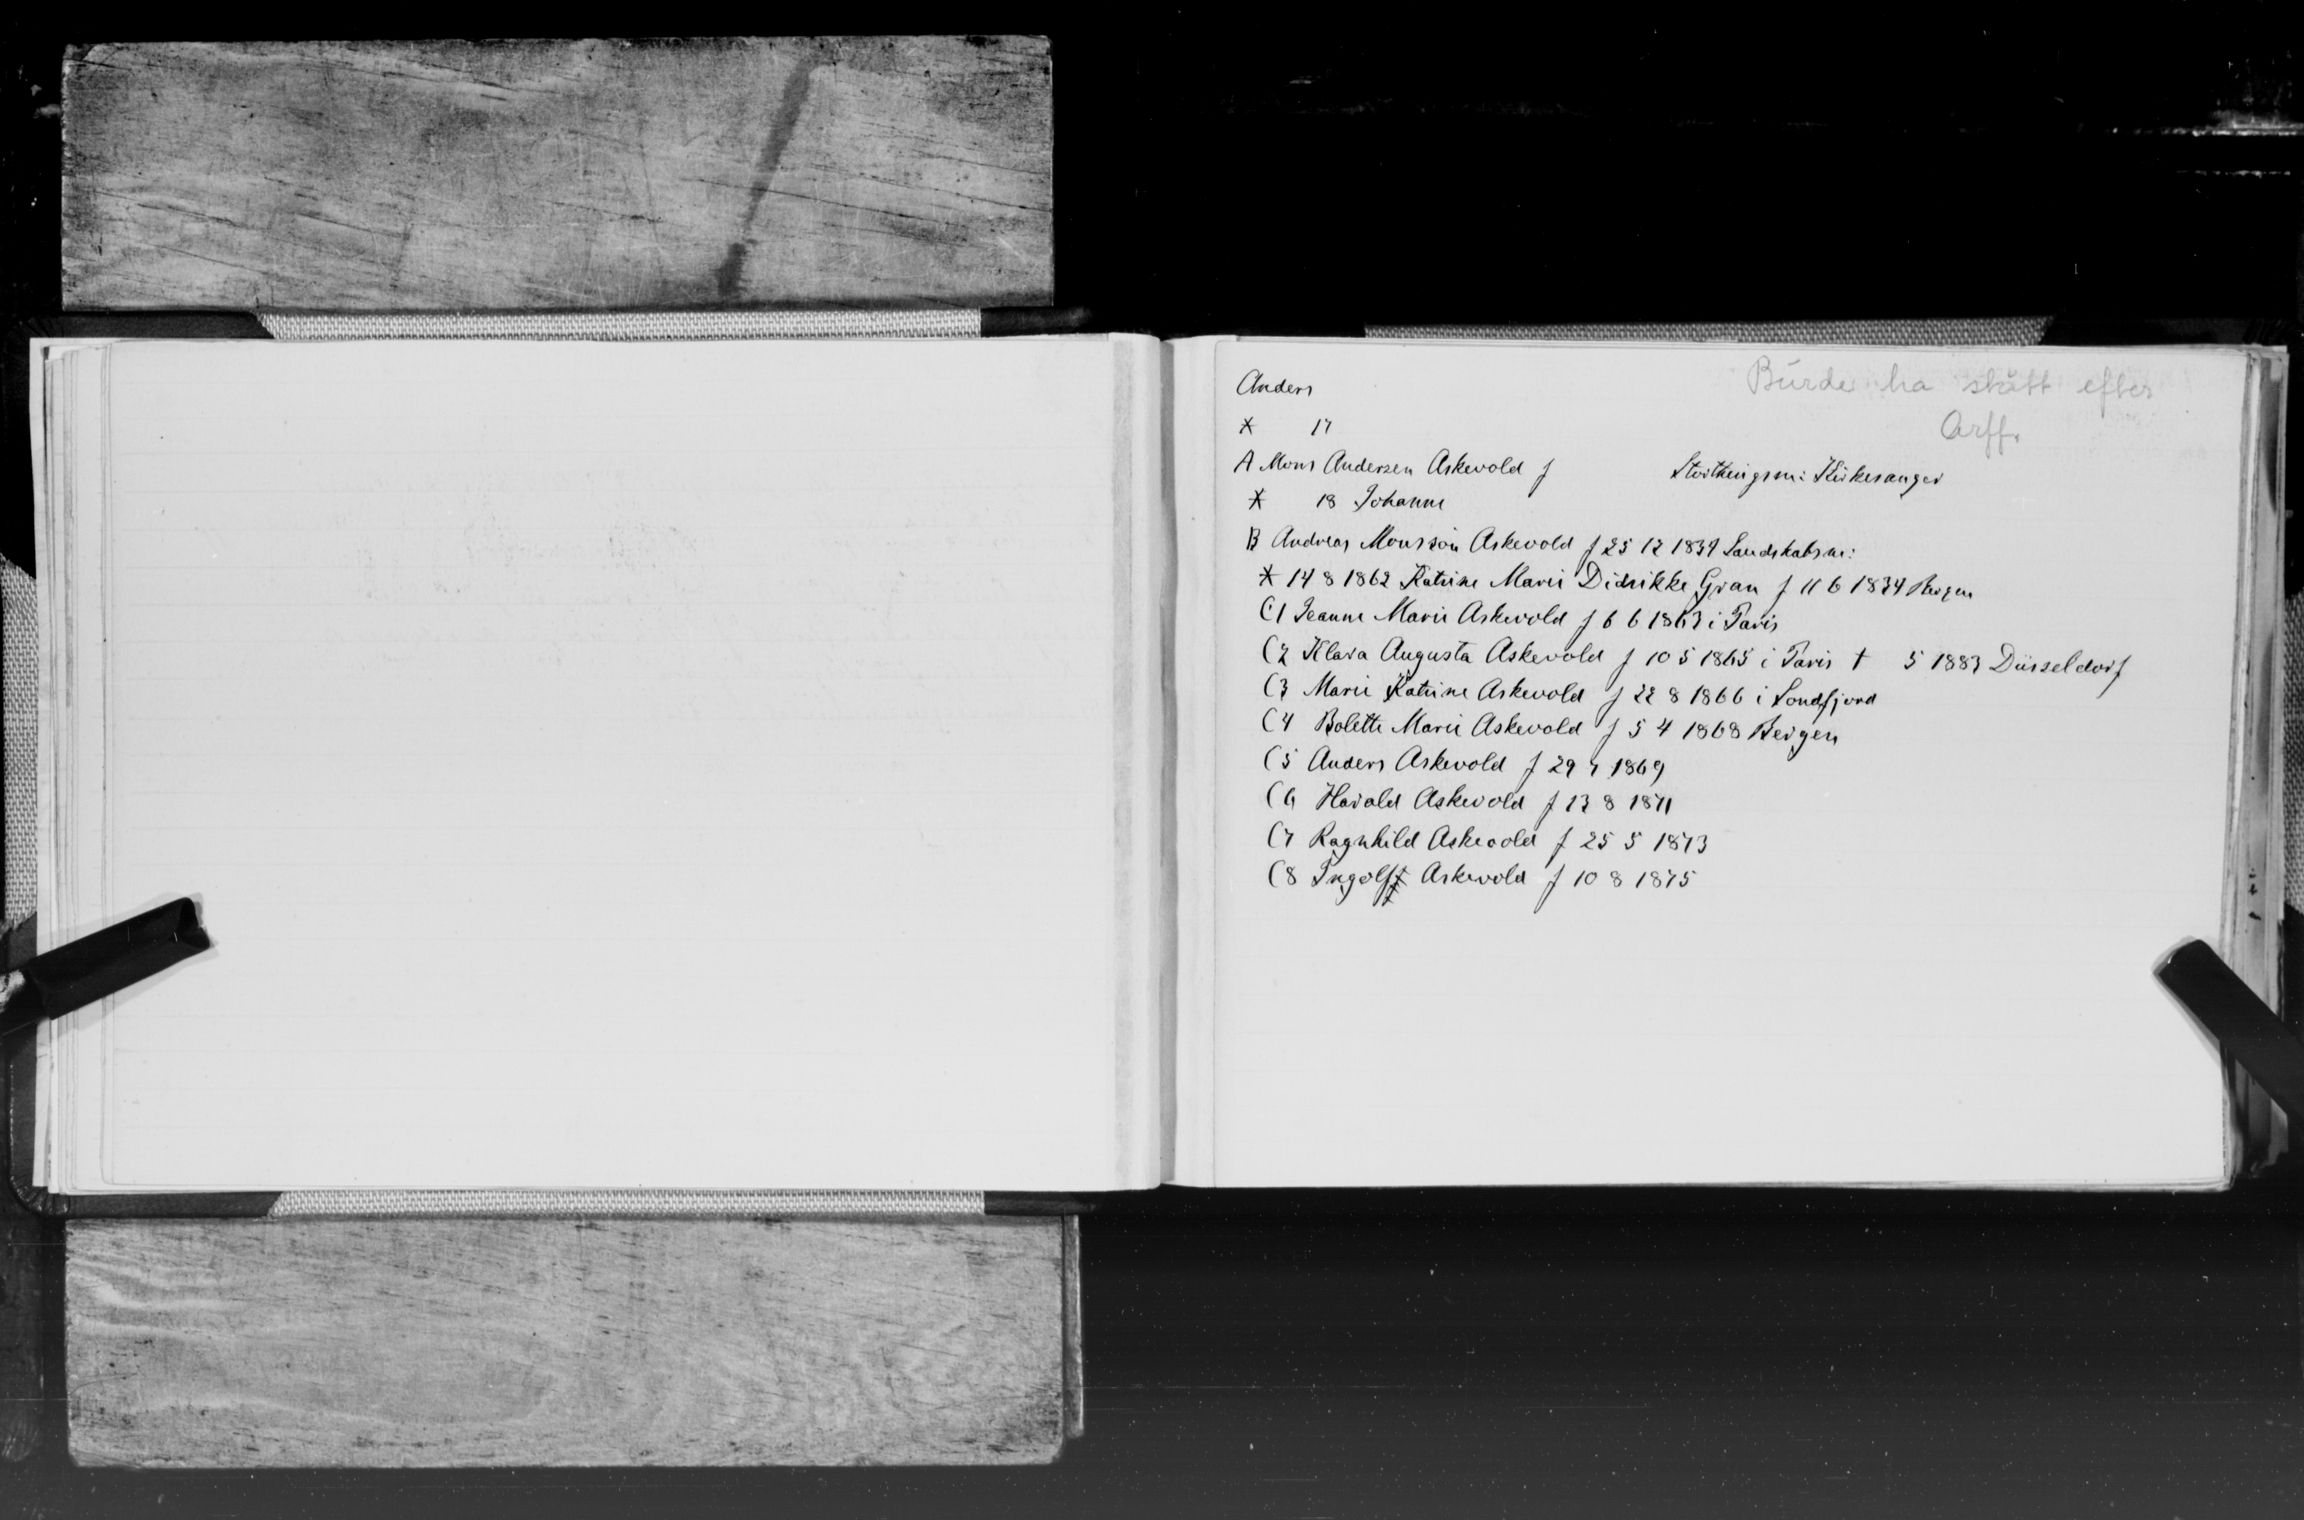 Anders
Burde ha stått efter
Arff.
* 17
A Mons Andersen Askevold f Storthingsm: Kirkesanger
* 18 Johanne
B Andreas Monsson Askevold f 25 12 1834 Landskabsm:
* 14 8 1862 Katrine Marie Didrikke Gran f 11 6 1834 Bergen
C1 Jeanne Marie Askevold f 6 6 1863 i Paris
C2 Klara Augusta Askevold f 10 5 1865 i Paris † 5 1883 Düsseldorf
C3 Marie Katrine Askevold f 22 8 1866 i Sondfjord
C4 Bolette Marie Askevold f 5 4 1868 Bergen
C5 Anders Askevold f 29 7 1869
C6 Harald Askevold f 13 8 1871
C7 Ragnhild Askevold f 25 5 1873
C8 Ingolf Askevold f 10 8 1875